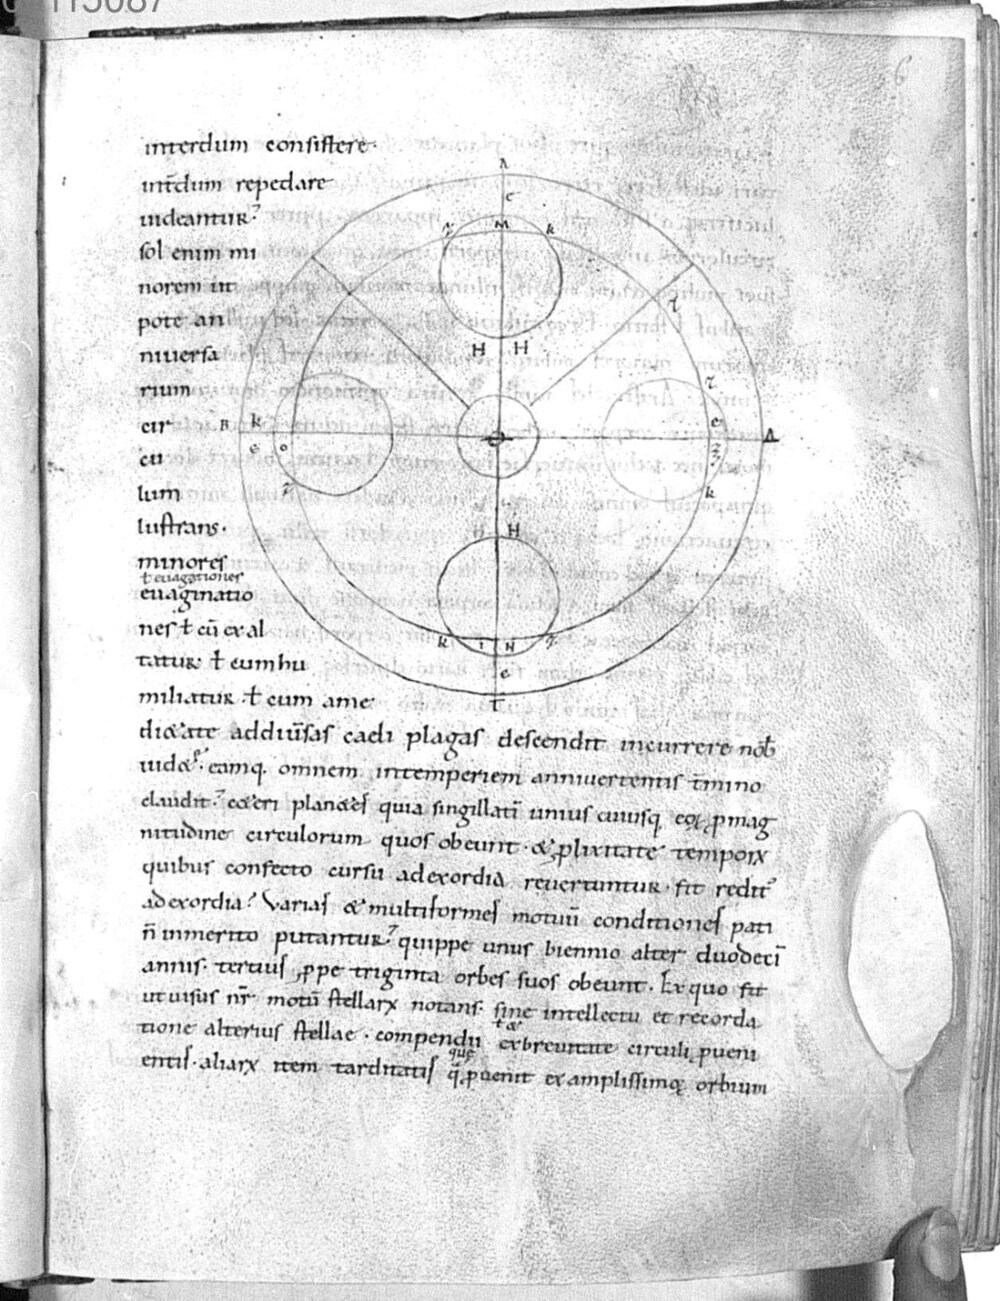 115087
6
interdum consistere·
int̄dum repedare
uideantur?
sol enim mi
norem in
pote an
niuersa
rium
cir
cu
lum
lustrans·
minores
ł euagationes
euaginatio
nes ł cū exal
tatur ł cum hu
miliatur ł cum ame
di&ate addiūsas caeli plagas descendit incurrere nob̄
uid&ur· eamq; omnem intemperiem anniuertentis t̄mino
claudit? c&eri plan&es quia singillatī unius cuiusq; eoꝝ ꝓ mag
nitudine circulorum quos obeunt· & ꝓlixitate temporꝝ
quibus confecto cursu ad exordia reuertuntur· fit redit᷑
ad exordia? Varias & multiformes motuū conditiones pati
n̄ inmerito putantur? quippe unus biennio alter duodecī
annis· tertius ꝓpe triginta orbes suos obeunt· Ex quo fit
ut uisus nr̄ motū stellarꝝ notans· sine intellectu et recorda
tione alterius stellae· compendii ex breuitate circuli ꝓueni
ł &
entis· aliarꝝ item tarditatis q̄ ꝓuenit ex amplissimoꝝ orbium
que
A
c
M
k
H H
B
k
e
o
z
e
Δ
k
H
k
N
z
e
T